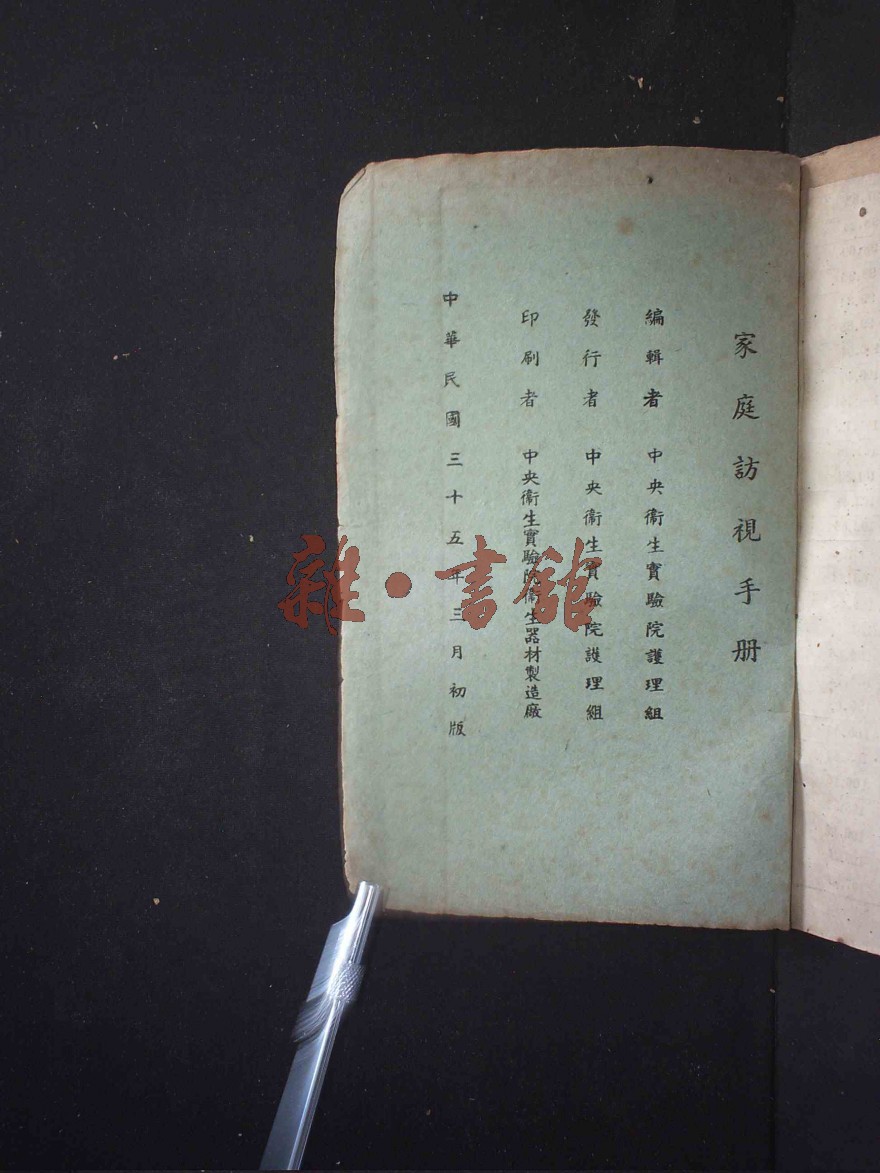 家庭訪視手册
編輯者 中央衞生實驗院護理組
發行者 中央衞生實驗院護理組
印刷者 中央衞生實驗院衞生器材製造廠
中華民國三十五年三月初版
雜·書館